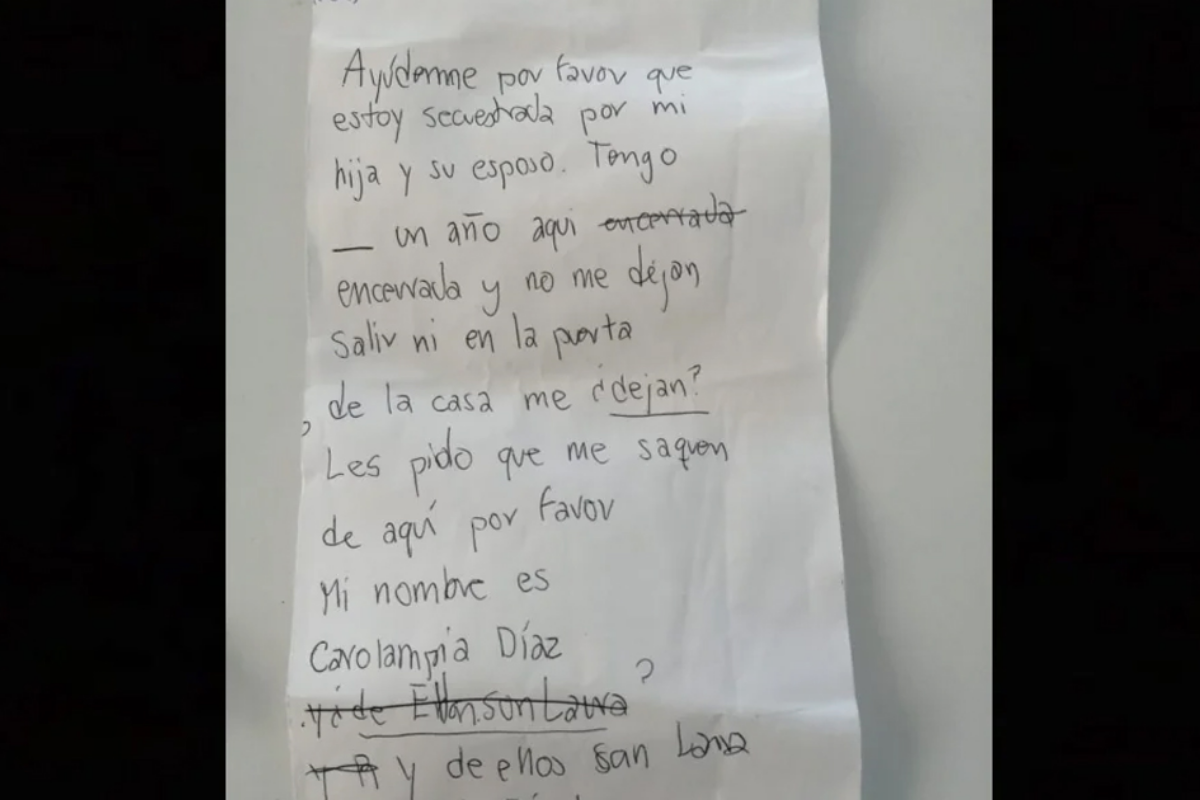 Ayúdenme por favor que
estoy secuestrada por mi
hija y su esposo. Tengo
__ un año aqui encerrada
encerrada y no me dejan
salir ni en la puerta
de la casa me ¿dejan?
Les pido que me saquen
de aquí por favor
Mi nombre es
Carolampia Díaz
?
y de ellos son